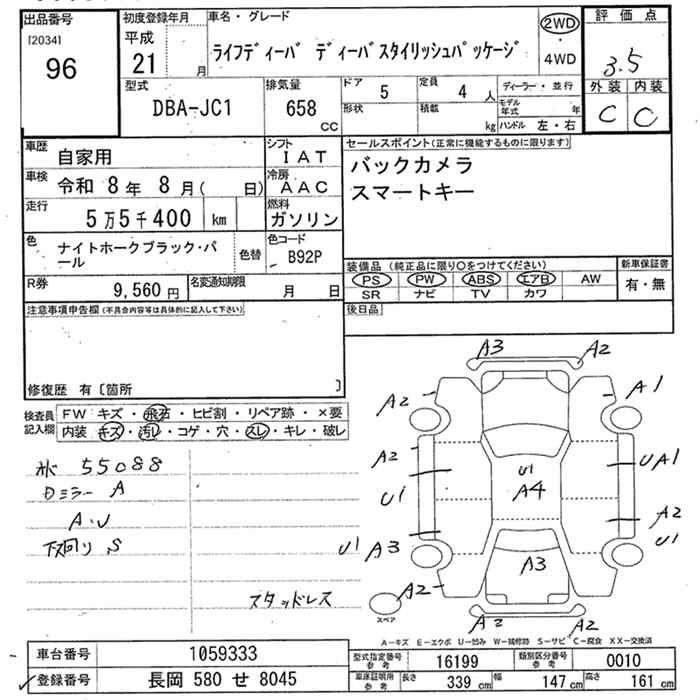 出品番号
[2034]
96
初度登録年月
平成
21 月
車名・グレード
ライフディーバ ディーバスタイリッシュパッケージ
2WD
・
4WD
評価点
3.5
外装 内装
C C
型式
DBA-JC1
排気量
658
cc
ドア
5
定員
4 人
形状
積載
kg
ディーラー・並行
モデル年式 年
ハンドル 左・右
車歴
自家用
シフト
IAT
車検
令和 8年 8月( 日)
冷房
AAC
走行
5万5千400 km
燃料
ガソリン
色
ナイトホークブラック・パール
色替
色コード
B92P
R券
9,560 円
名変通知期限
月 日
セールスポイント(正常に機能するものに限ります)
バックカメラ
スマートキー
装備品 (純正品に限り○をつけてください)
PS PW ABS エアB AW
SR ナビ TV カワ
新車保証書
有・無
後日品
注意事項申告欄(不具合内容等は具体的に記入して下さい)
修復歴 有〔箇所 〕
検査員記入欄
FW キズ・飛石・ヒビ割・リペア跡・×要
内装 キズ・汚レ・コゲ・穴・スレ・キレ・破レ
55088
ミラー A
A・U
下回り S
スタッドレス
A3 A2
A2 A1
A2 UA1
U1 U1 A4
A2
U1 A3 U1
A3
A2
スペア
A2 A2
A－キズ E－エクボ U－凹み W－補修跡 S－サビ C－腐食 XX－交換済
車台番号
1059333
登録番号
長岡 580 せ 8045
型式指定番号
参考
16199
類別区分番号
参考
0010
車庫証明用
参考
長さ 339 cm
幅 147 cm
高さ 161 cm